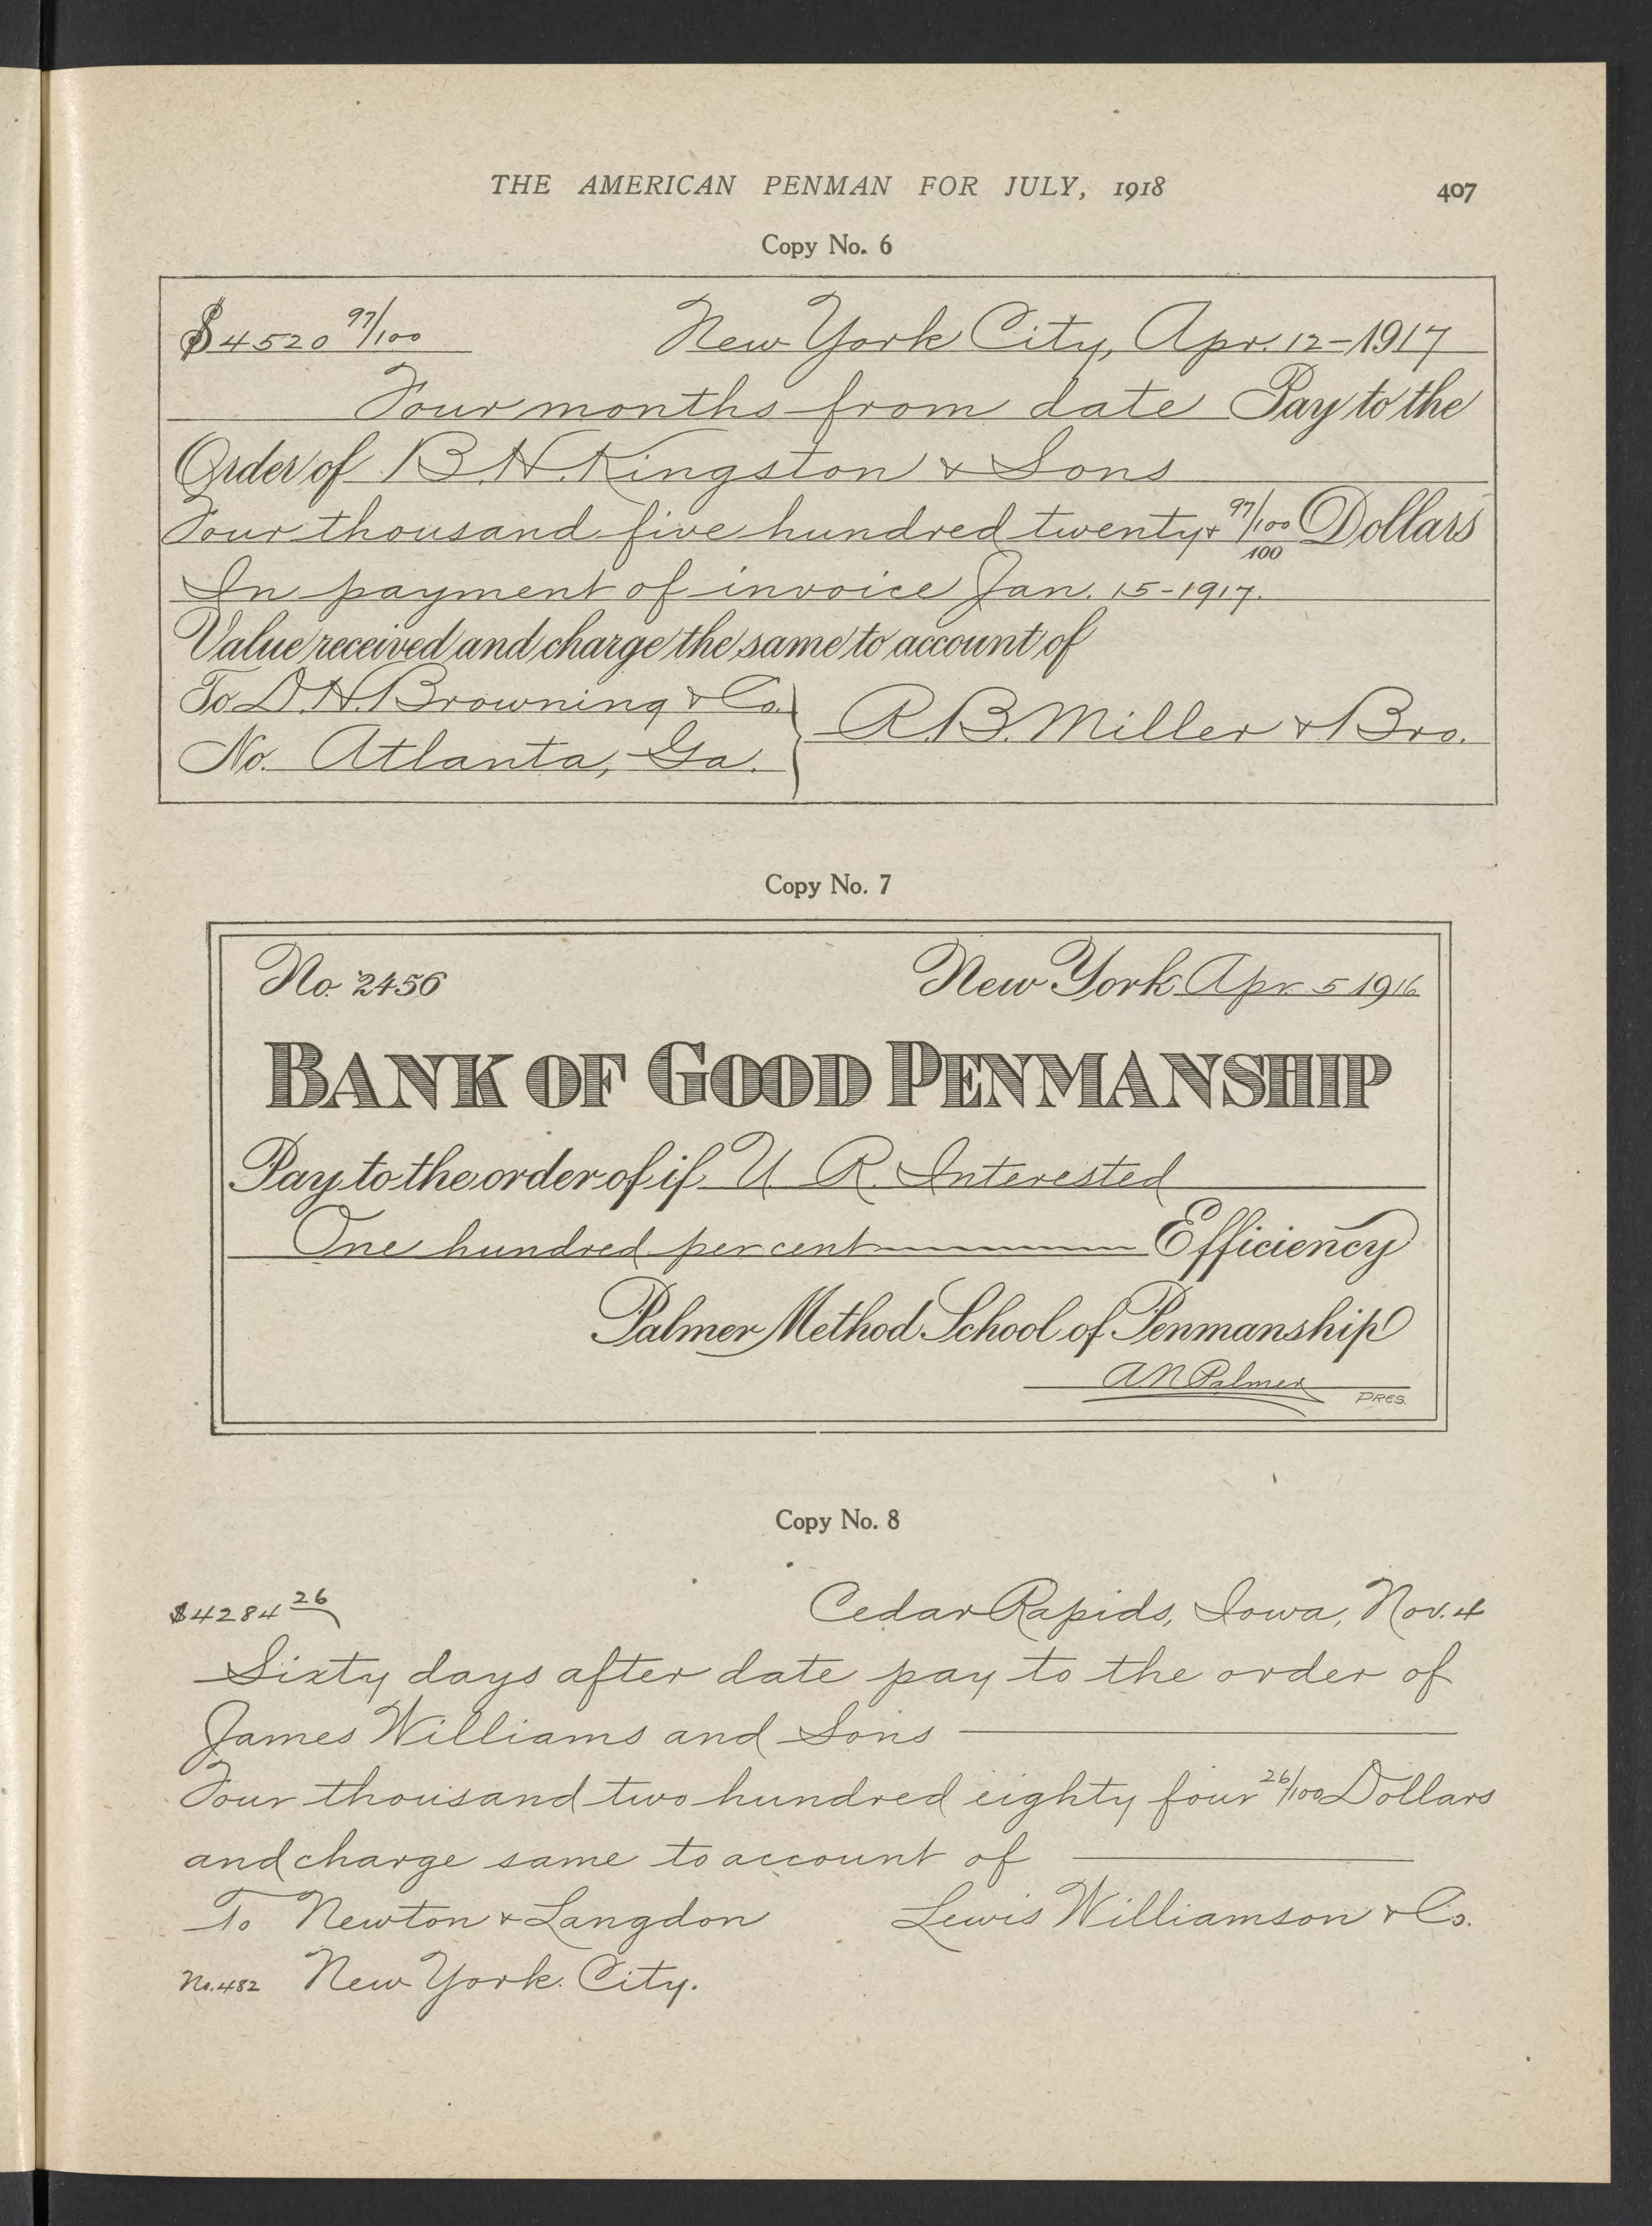 THE AMERICAN PENMAN FOR JULY, 1918 407
Copy No. 6
$4520 97/100 New York City, Apr. 12-1917
Four months from date Pay to the
Order of B.H. Kingston & Sons
Four thousand five hundred twenty & 97/100 Dollars
100
In payment of invoice Jan. 15-1917.
Value received and charge the same to account of
To D.H. Browning & Co.
R.B. Miller & Bro.
No. Atlanta, Ga.
Copy No. 7
No. 2456 New York Apr. 5 1916
BANK OF GOOD PENMANSHIP
Pay to the order of if U. R. Interested
One hundred per cent Efficiency
Palmer Method School of Penmanship
A.N. Palmer
PRES.
Copy No. 8
$4284 26 Cedar Rapids, Iowa, Nov. 4
Sixty days after date pay to the order of
James Williams and Sons
Four thousand two hundred eighty four 26/100 Dollars
and charge same to account of
To Newton & Langdon Lewis Williamson & Co.
No. 482 New York City.